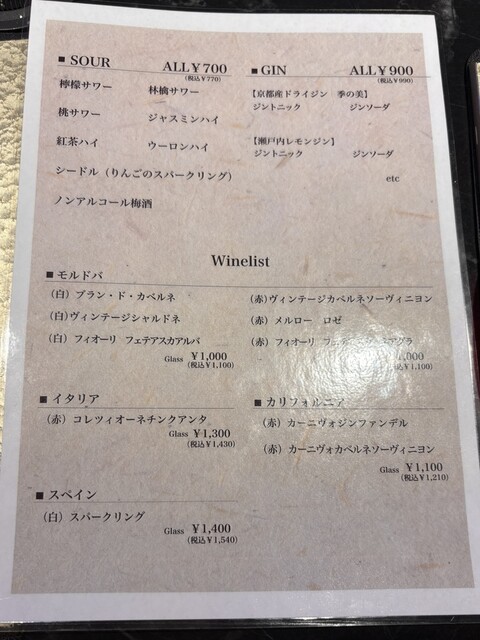 ■ SOUR ALL￥700
(税込￥770)
檸檬サワー 林檎サワー
桃サワー ジャスミンハイ
紅茶ハイ ウーロンハイ
シードル（りんごのスパークリング）
ノンアルコール梅酒
■ GIN ALL￥900
(税込￥990)
【京都産ドライジン 季の美】
ジントニック ジンソーダ
【瀬戸内レモンジン】
ジントニック ジンソーダ
etc
Winelist
■ モルドバ
（白）ブラン・ド・カベルネ
（白）ヴィンテージシャルドネ
（白）フィオーリ フェテアスカアルバ
Glass ￥1,000
(税込￥1,100)
（赤）ヴィンテージカベルネソーヴィニヨン
（赤）メルロー ロゼ
（赤）フィオーリ
,000
(税込￥1,100)
■ イタリア
（赤）コレツィオーネチンクアンタ
Glass ￥1,300
(税込￥1,430)
■ カリフォルニア
（赤）カーニヴォジンファンデル
（赤）カーニヴォカベルネソーヴィニヨン
Glass ￥1,100
(税込￥1,210)
■ スペイン
（白）スパークリング
Glass ￥1,400
(税込￥1,540)